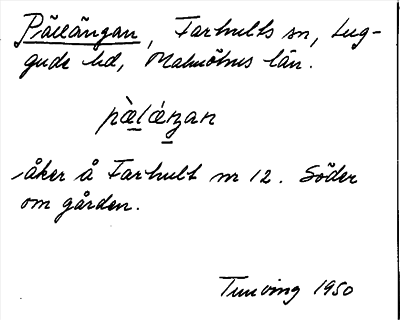 Pällängan, Farhults sn, Lug-
gude hd, Malmöhus län.
pæ̀lǽŋan
åker å Farhult nr 12. Söder
om gården.
Tuneving 1950